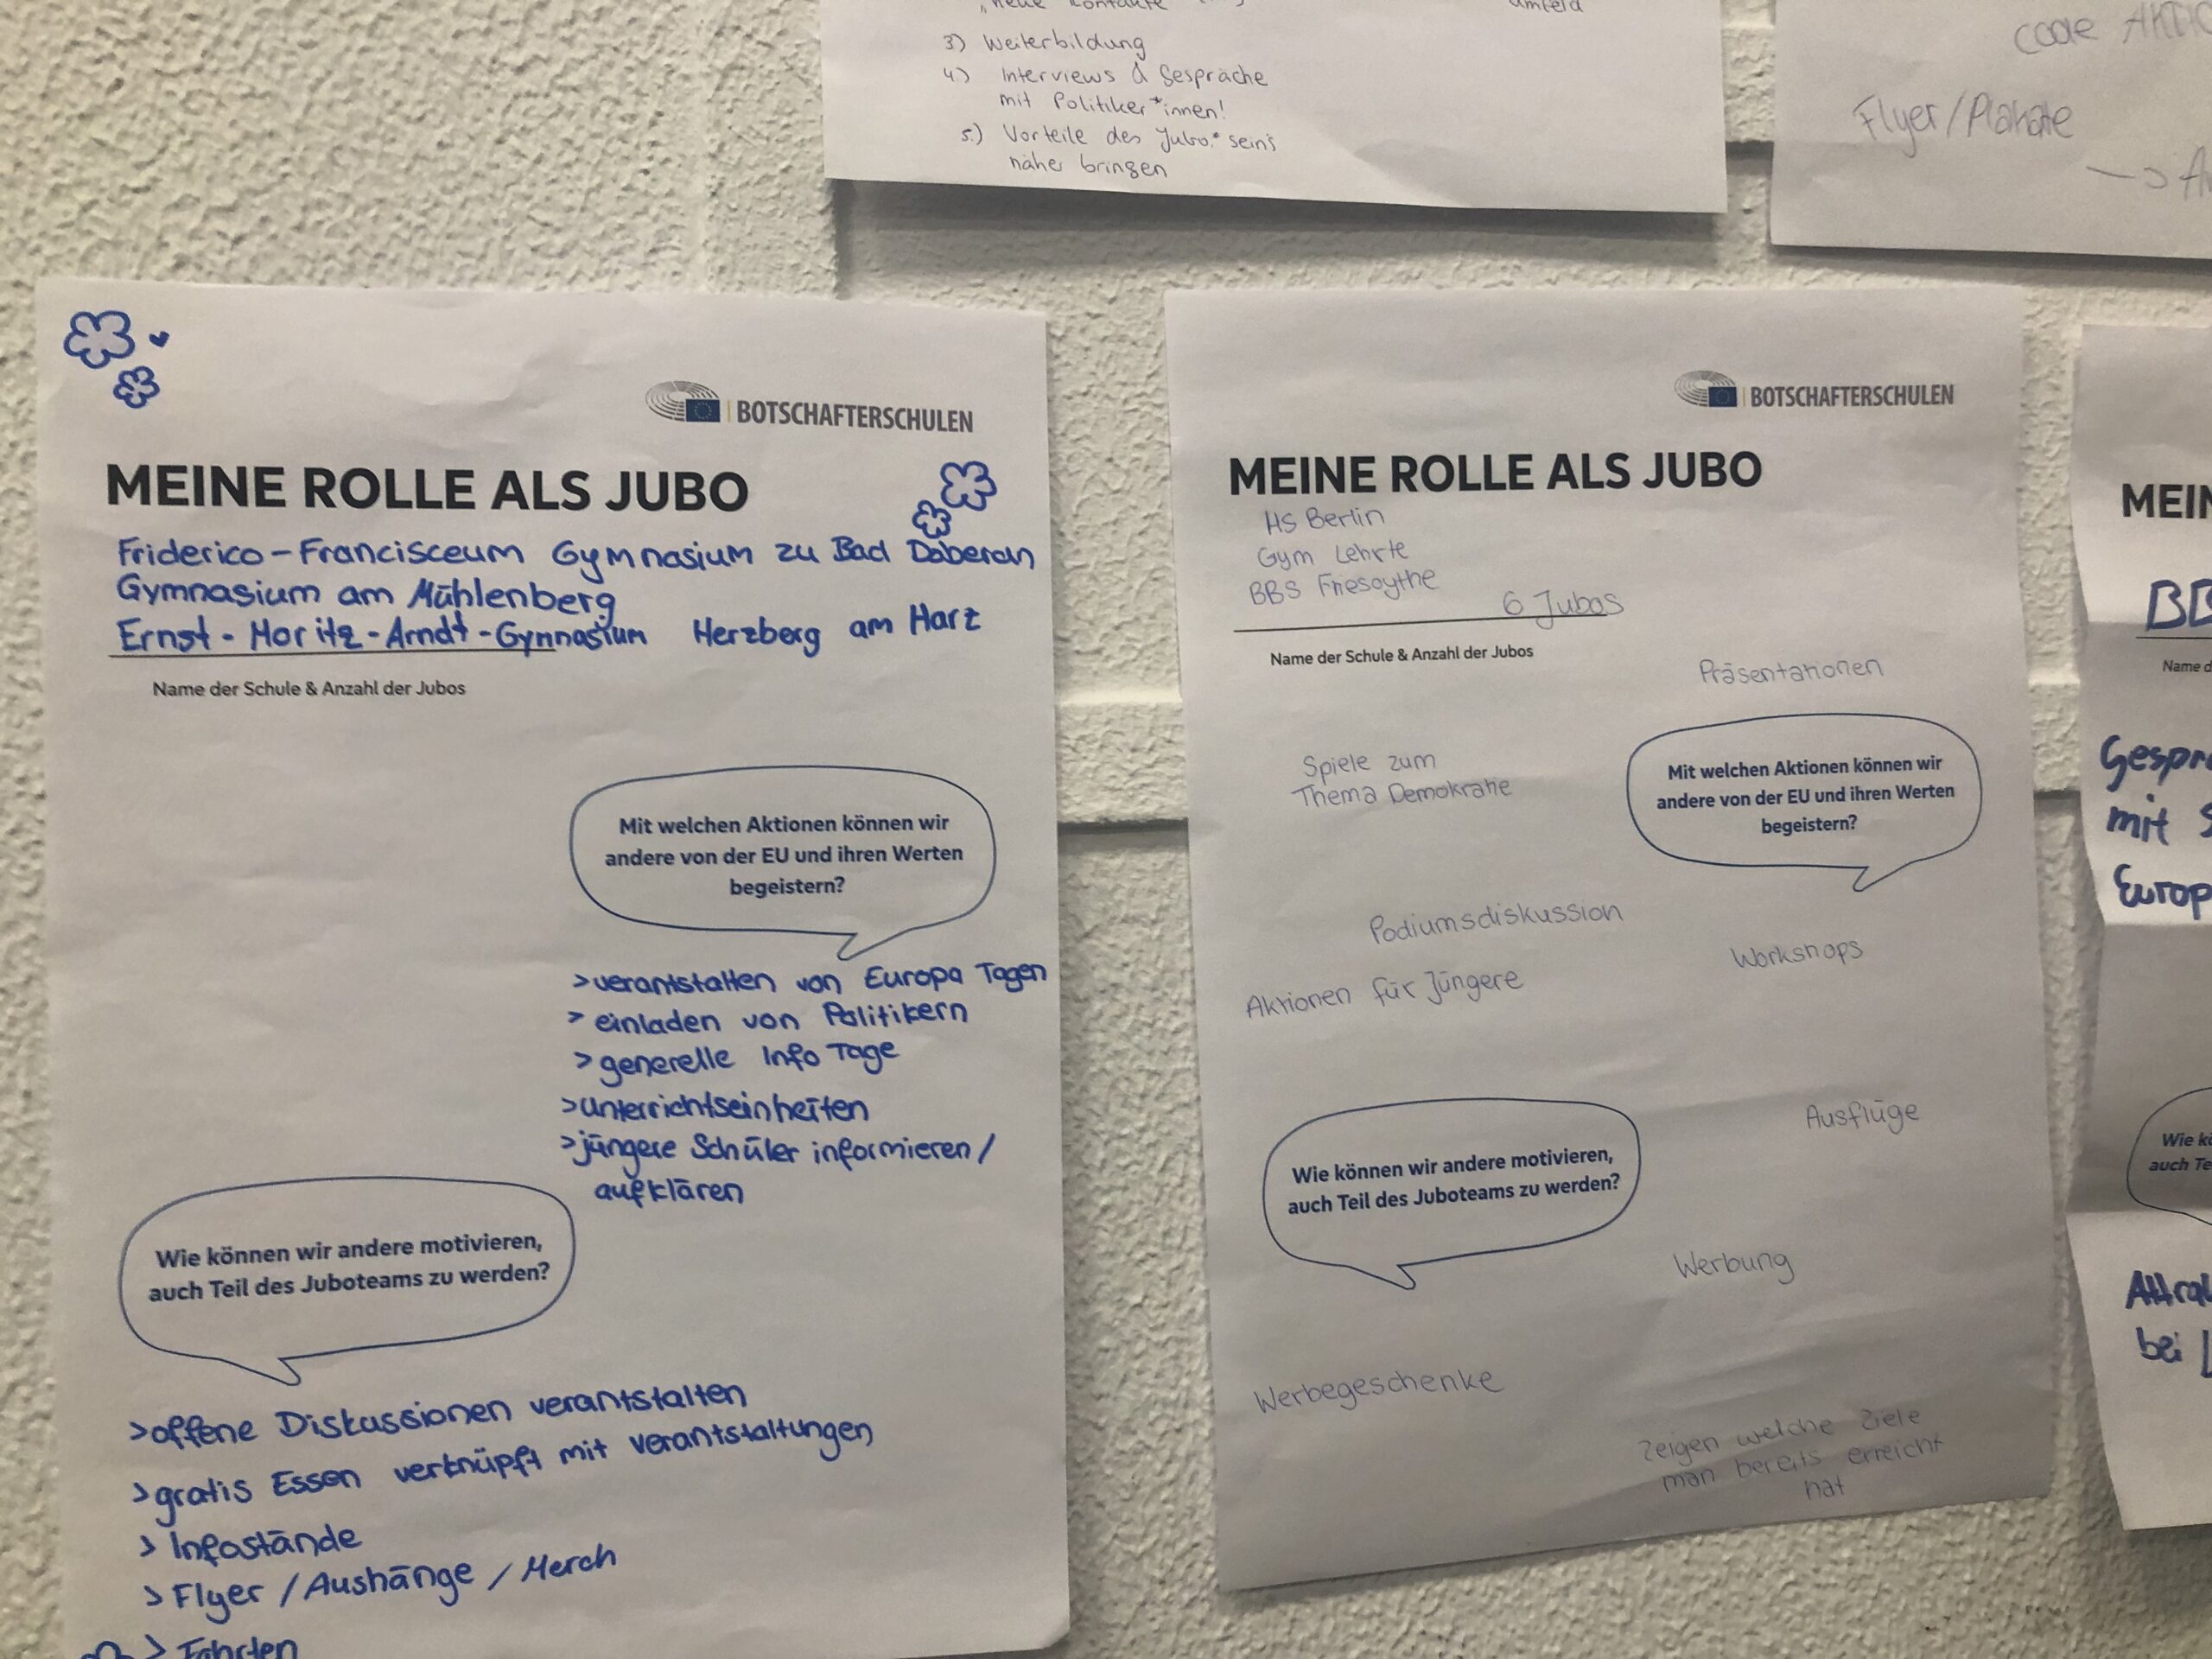 3) Weiterbildung
4) Interviews & Gespräche
mit Politiker*innen!
5.) Vorteile des Jubo.* seins
näher bringen
Flyer/Plakate
BOTSCHAFTERSCHULEN
MEINE ROLLE ALS JUBO
Friderico-Francisceum Gymnasium zu Bad Doberan
Gymnasium am Mühlenberg
Ernst-Moritz-Arndt-Gynnasium Herzberg am Harz
Name der Schule & Anzahl der Jubos
Mit welchen Aktionen können wir
andere von der EU und ihren Werten
begeistern?
>verantstalten von Europa Tagen
> einladen von Politikern
> generelle Info Tage
>unterrichtseinheiten
>jüngere Schüler informieren/
aufklären
Wie können wir andere motivieren,
auch Teil des Juboteams zu werden?
>offene Diskussionen verantstalten
>gratis Essen verknüpft mit verantstaltungen
> Infostände
> Flyer / Aushänge / Merch
> Fahrten
BOTSCHAFTERSCHULEN
MEINE ROLLE ALS JUBO
HS Berlin
Gym Lehrte
BBS Friesoythe
6 Jubos
Name der Schule & Anzahl der Jubos
Präsentationen
Spiele zum
Thema Demokratie
Mit welchen Aktionen können wir
andere von der EU und ihren Werten
begeistern?
Podiumsdiskussion
Workshops
Aktionen für Jüngere
Ausflüge
Wie können wir andere motivieren,
auch Teil des Juboteams zu werden?
Werbung
Werbegeschenke
Zeigen welche Ziele
man bereits erreicht
hat
mit
bei